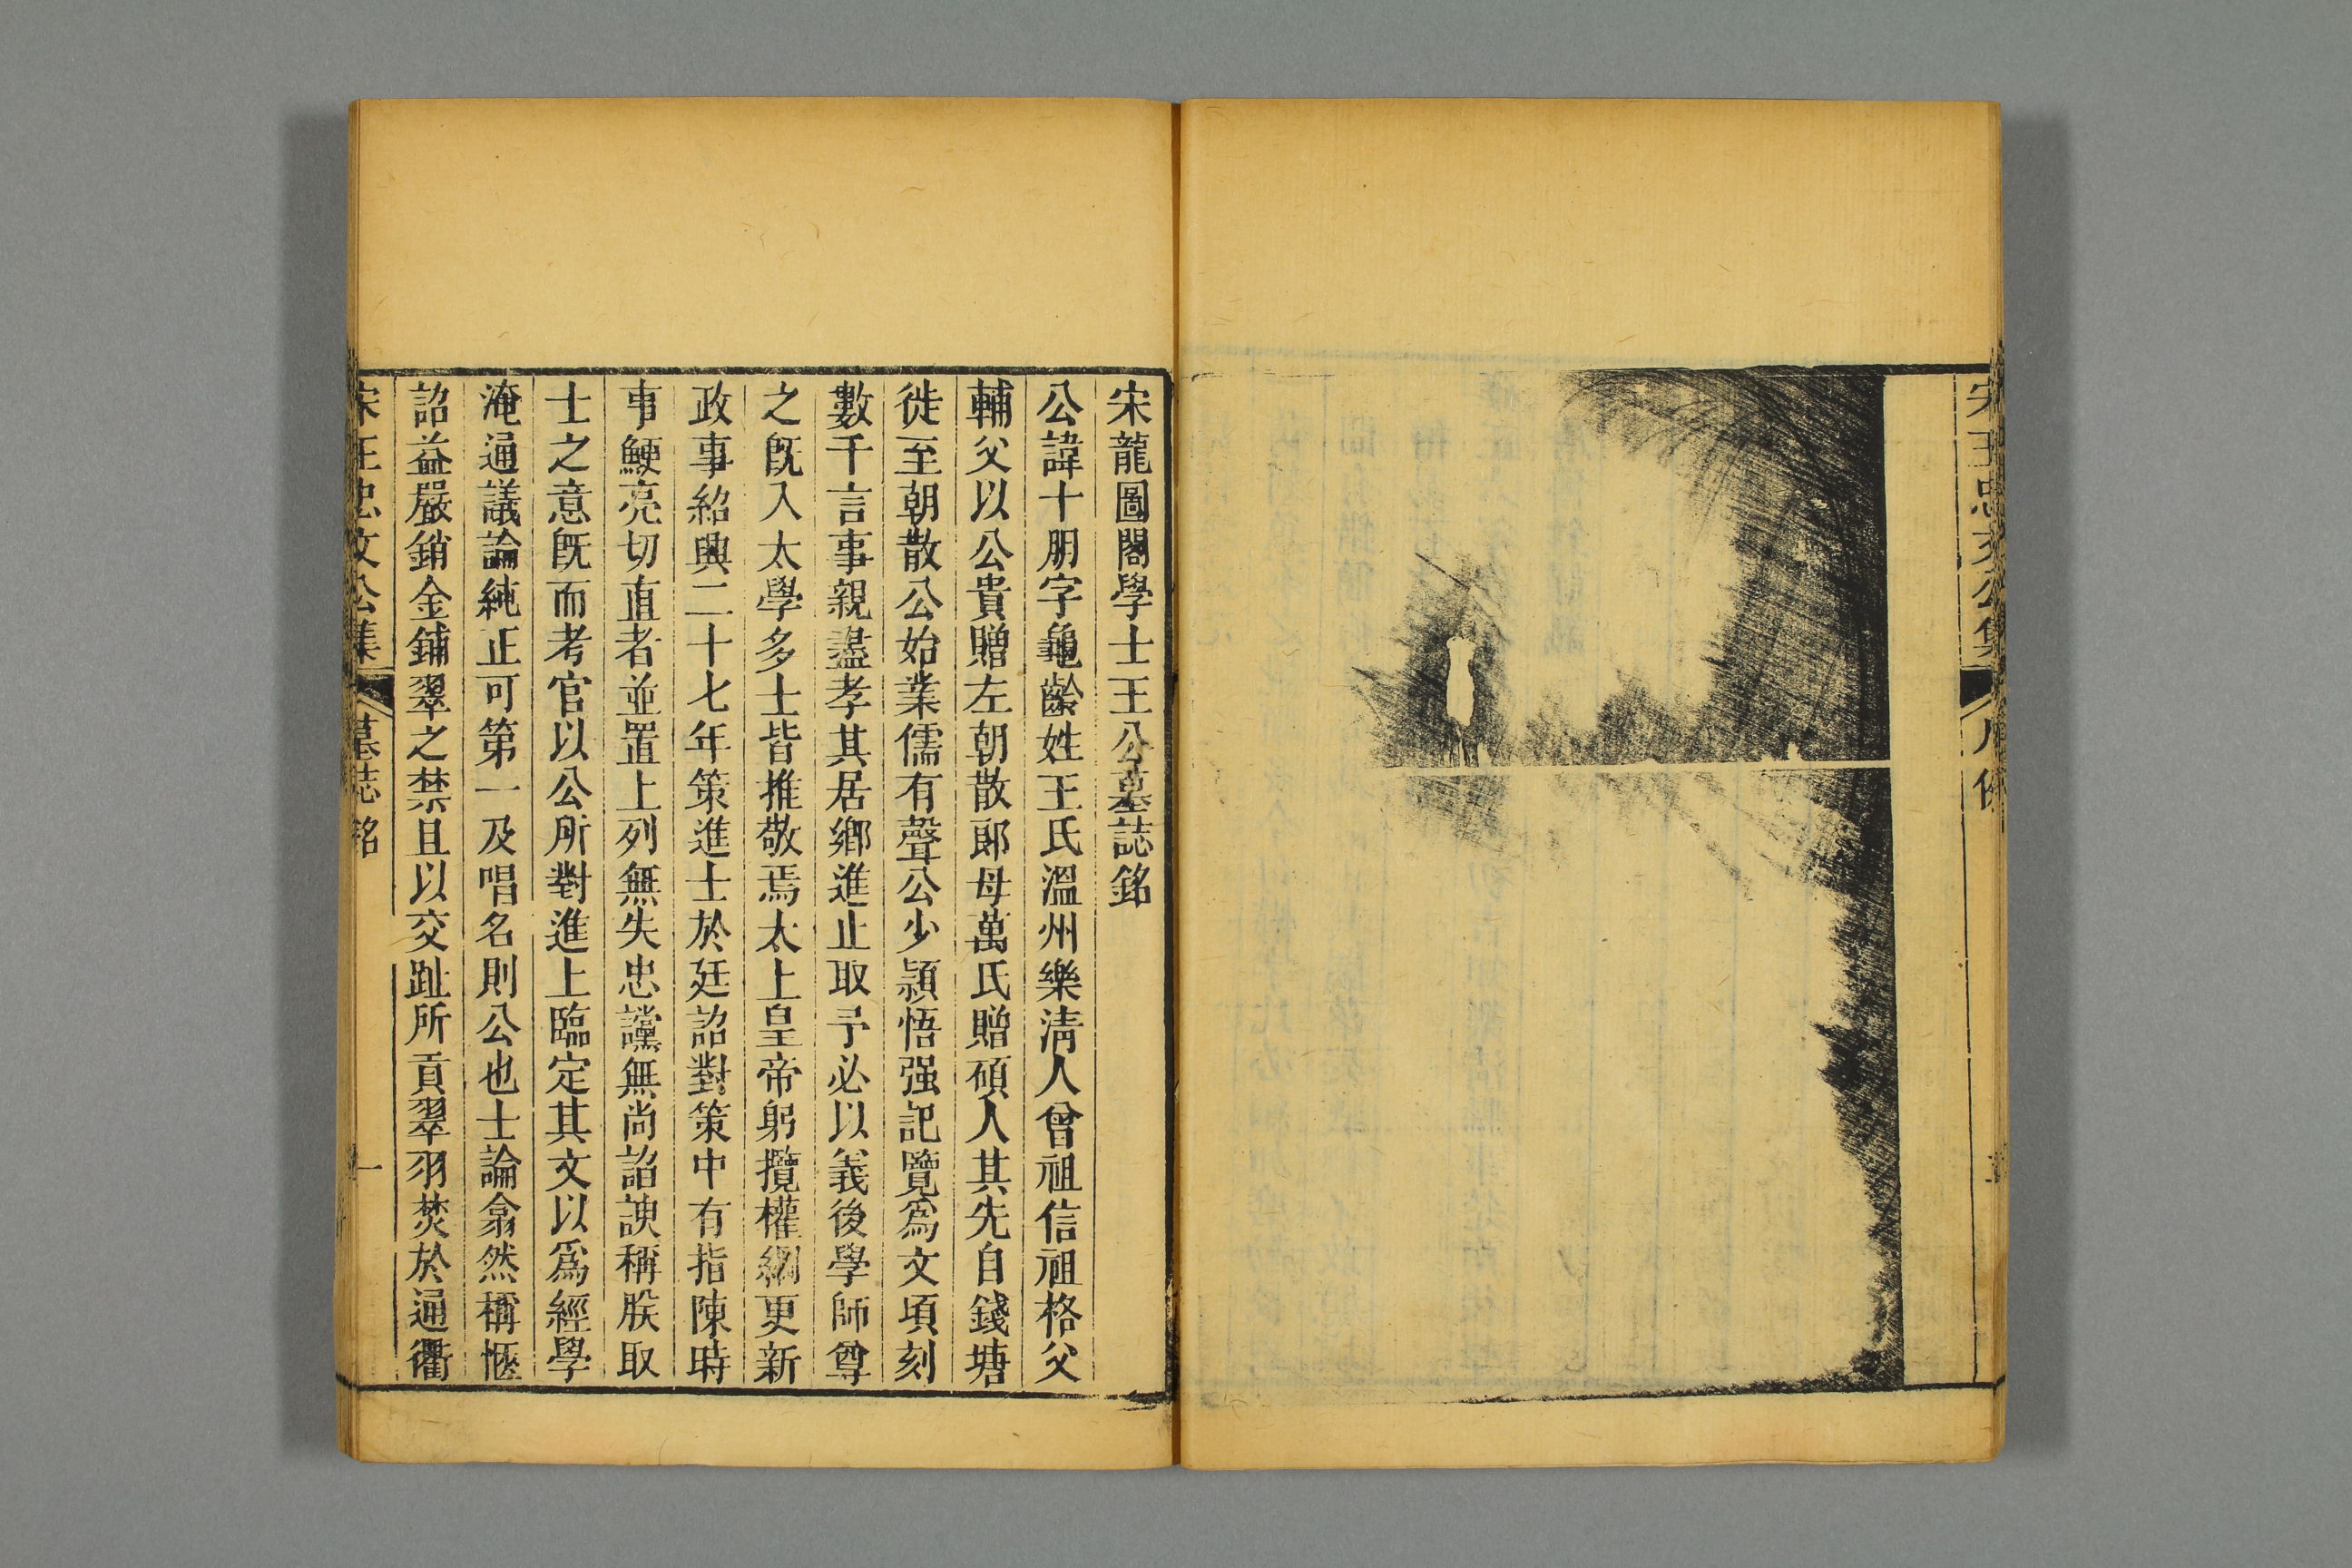 宋王忠文公集
宋龍圖閣學士王公墓誌銘
公諱十朋字龜齡姓王氏溫州樂淸人曾祖信祖格父
輔父以公貴贈左朝散郞母萬氏贈碩人其先自錢塘
徙至朝散公始業儒有聲公少潁悟强記覽爲文頃刻
數千言事親盡孝其居鄉進止取予必以義後學師尊
之旣入太學多士皆推敬焉太上皇帝躬攬權綱更新
政事紹興二十七年策進士於廷詔對策中有指陳時
事鯁亮切直者並置上列無失忠讜無尚諂諛稱朕取
士之意旣而考官以公所對進上臨定其文以爲經學
淹通議論純正可第一及唱名則公也士論翕然稱愜
詔益嚴銷金鋪翠之禁且以交趾所貢翠羽焚於通衢
宋王忠文公集 墓誌銘 一